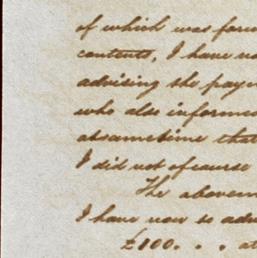 of which was for
contents, I have no
advising the paym
who also informed
at sametime that
I did not of course
The abovem
I have now to adv
£100. . . at